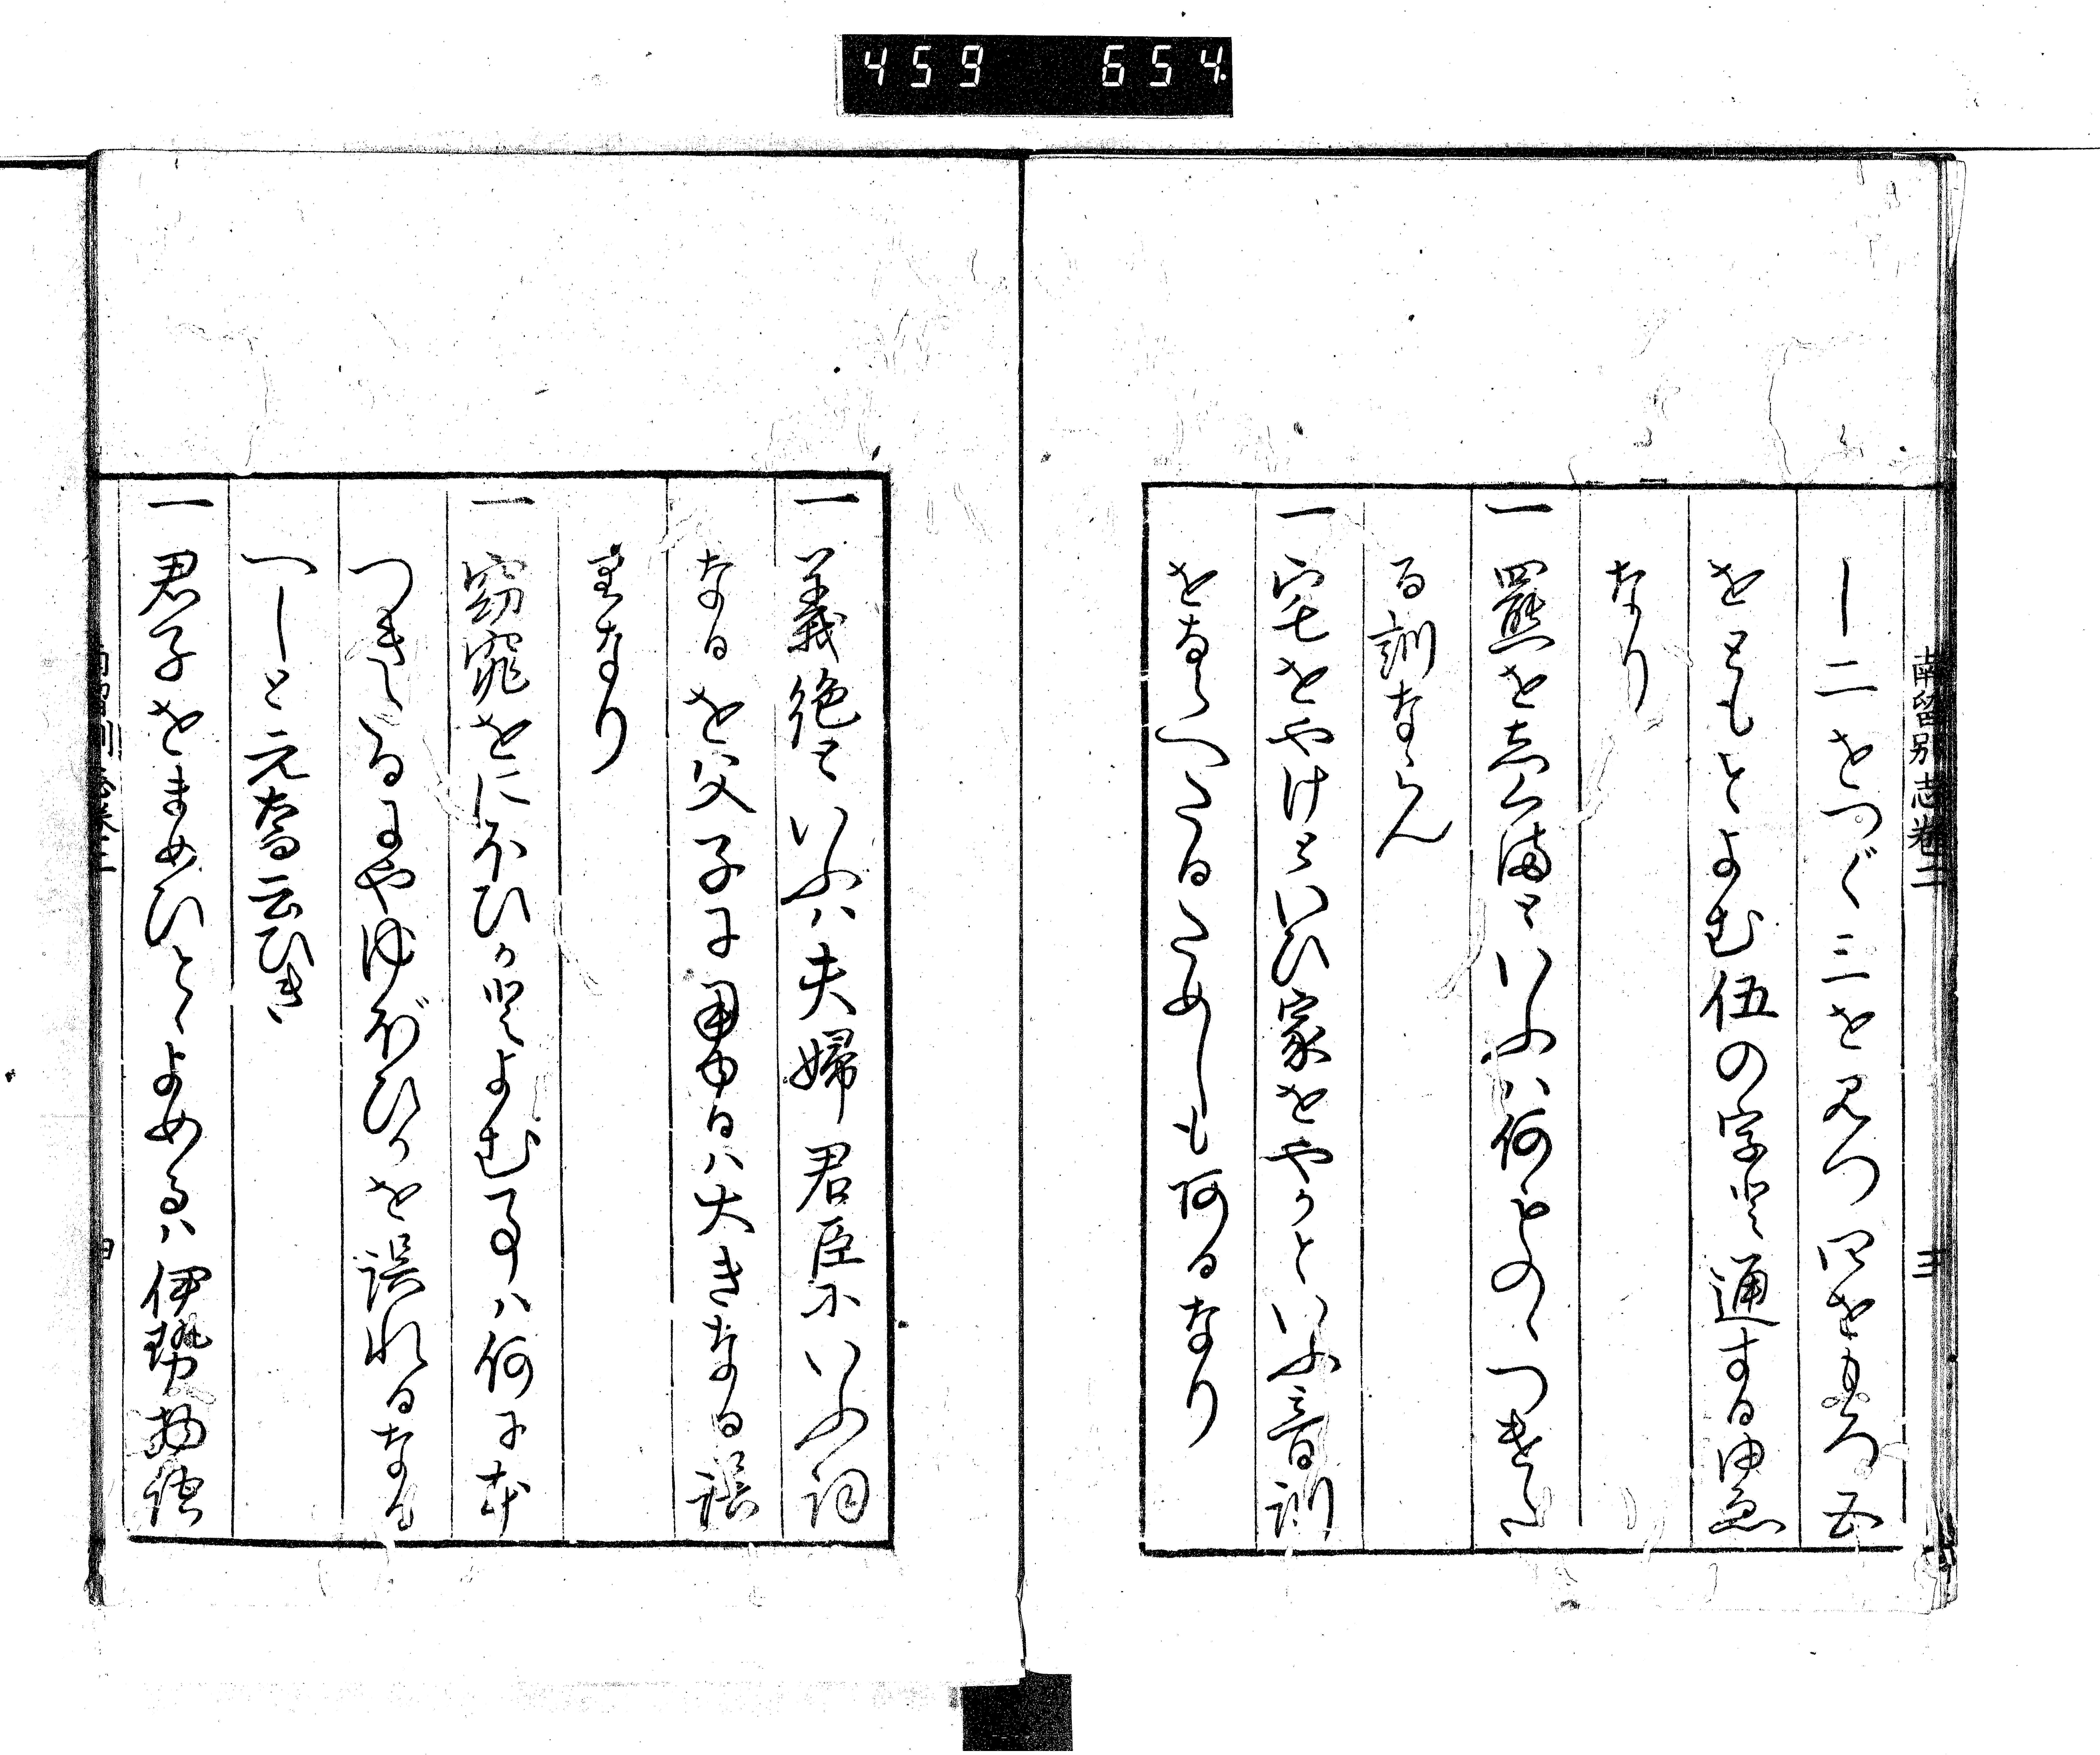 459 654
南留別志巻二
三
し二をつぐ三を見つ四をもろ五
をともとよむ伍の字と通する由恵
なり
一羆をしくまといふハ何ものゝつきた
る訓ならん
一宅をやけといひ家をやかといふ音訓
をならへたるためしも阿るなり
一義絶といふハ夫婦君臣にいふ詞
なるを父子に用ゆるハ大きなる誤
りなり
一窈窕をにほひかとよむ事ハ何に本
つきしるにやゆほひかを誤れるなる
へしと元喬云ひき
一君子をまめひとゝよめるハ伊勢物語